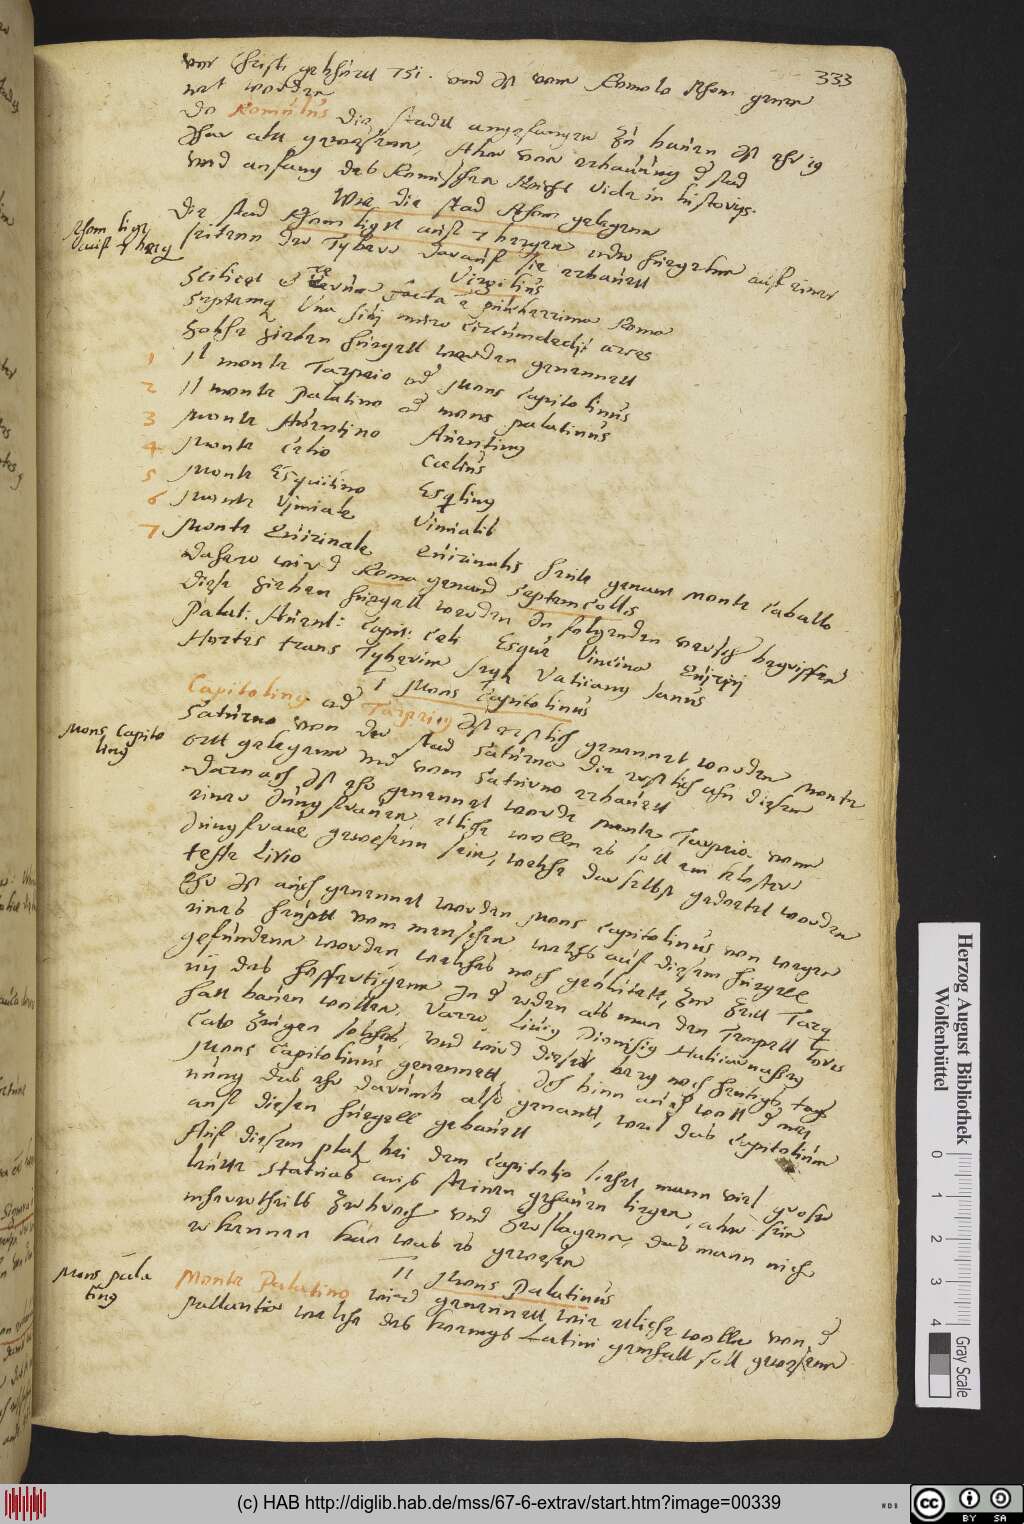 333
vor Christi gebhürtt 751. vnd ist vom Romolo Rhom genen
net worden
Do Romulus die stadtt angefangen zu bauen ist ehr 18
Jhar altt gewesenn, Aber von erbauung d stad
vnd anfang des Romischen Reichs vide in historijs.
Wie die stad Rhom gelegenn
Rhom ligt
auff 7 berg
Die stad Rhom ligtt auff 7 bergen oder huegelnn auff einer
seitenn der Tyberr darauff sie erbauett
Virgilius
Scilicet et rerum facta est pulcherrima Roma
Septemque una sibi muro circumdedit arces
Solche sieben huegell werden genennett
1 Il monte Tarpeio od Mons Capitolinus
2 Il monte Palatino od mons palatinus
3 Monte Auentino Auentinus
4 Monte Celio Coelius
5 Monte Esquilino Esqlinus
6 Monte Vimiale Vimialis
7 Monte Quirinale Quirinalis heute genant Monte Caballo
Dahero wird Roma genand Septemcollis
Diese sieben huegell werden In folgenden versch begriffen
Palat: Auent: Capit: Celi Esqui Vimino Quirini
Hortes trans Tyberim sach Vaticanus Janus
I Mons Capitolinus
Mons Capito
linus
Capitolinus od Tarpeius ist erstlich genennet worden Monte
Saturno von der stad Saturno die erstlich ahn diesem
ortt gelegenn vnd vom Saturno erbauett
Darnach ist ehr genennet worde Monte Tarpeio vonn
einer Jungfrauen, etliche wollen es soll ein kloster
Jungfraue gewesenn sein, welche daselbst gedoetet worden
teste Livio
Ehr ist auch genennet worden Mons Capitolinus von wegen
eines haupts vom menschen welchs auff diesem huegell
gefundenn worden welches noch gebluetett, zur Zeitt Tarq
nij des hoffertigenn In d erden als man den Tempell Iovis
hatt bauen wollen. Varro, Liuius Dionisius Halicarnasseus
Cato zeugen solches, vnd wird dieser berg noch heutigs tags
Mons Capitolinus genennett Ich binn auch woll d mei
nung das ehr darumb also genantt, weil das Capitolium
auff diesen huegell gebauett
Auff diesem platz bei dem Capitolio siehet mann viel grosse
hautte statuas auss steinen gehauen liegen, aber sein
mehrertheils zerbroch vnd zerslagenn, das mann nich
erkennen kan was es gewesen
II Mons Palatinus
Mons pala
tinus
Monte Palatino wird genennett wie etliche wollen von d
pallantia welche des koenigs Latini gemhall soll gewesenn
Herzog August Bibliothek
Wolfenbüttel
0 1 2 3 4
Gray Scale
(c) HAB http://diglib.hab.de/mss/67-6-extrav/start.htm?image=00339
WDB
cc BY SA